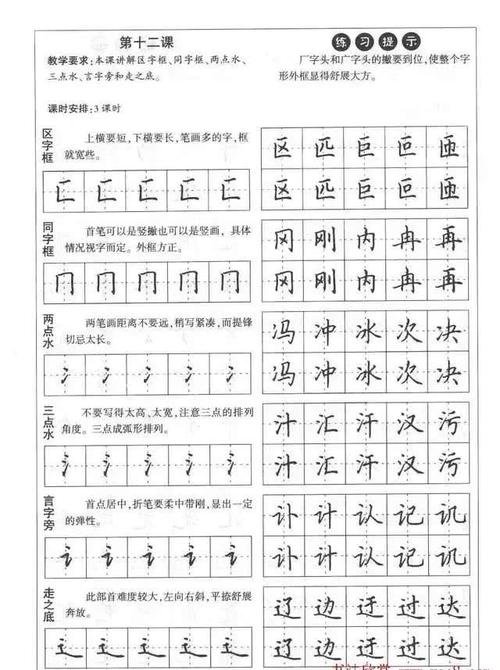 第十二课
教学要求:本课讲解区字框、同字框、两点水、
三点水、言字旁和走之底。
课时安排:3课时
练习提示
厂字头和广字头的撇要到位,使整个字
形外框显得舒展大方。
区字框
上横要短,下横要长,笔画多的字,框
就宽些。
匚 匚 匚 匚 匚
区 匹 巨 叵 匝
区 匹 巨 叵 匝
同字框
首笔可以是竖撇也可以是竖画,具体
情况视字而定。外框方正。
冂 冂 冂 冂 冂
冈 刚 内 冉 再
冈 刚 内 冉 再
两点水
两笔画距离不要远,稍写紧凑,而提锋
切忌太长。
冫 冫 冫 冫 冫
冯 冲 冰 次 决
冯 冲 冰 次 决
三点水
不要写得太高、太宽,注意三点的排列
角度。三点成弧形排列。
氵 氵 氵 氵 氵
汁 汇 汗 汉 污
汁 汇 汗 汉 污
言字旁
首点居中,折笔要柔中带刚,显出一定
的弹性。
讠 讠 讠 讠 讠
讣 计 认 记 讥
讣 计 认 记 讥
走之底
此部首难度较大,左向右斜,平捺舒展
奔放。
辶 辶 辶 辶 辶
辽 边 迂 过 达
辽 边 迂 过 达